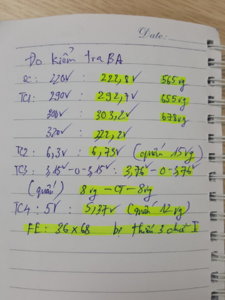 Date:
Đo kiểm tra BA
SC: 220V : 222,8V 565vg
TC1: 290V : 292,7V 655vg
300V : 303,2V 678vg
320V : 
TC2: 6,3V : 6,73V (quấn 15vg)
TC3: 3,15V-0-3,15V: 3,76-0-3,76
(quấn) 8vg-CT-8vg
TC4: 5V : 5,37V (quấn 12vg)
FE: 36x68 bị thiếu 3 chữ I